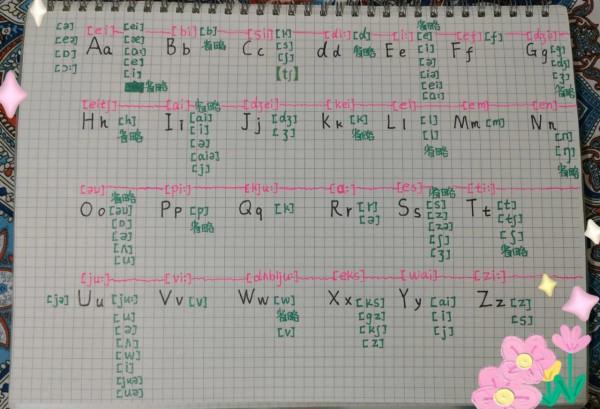 [ei] [bi:] [si:] [di:] [i:] [ef] [dʒi:]
Aa Bb Cc dd Ee Ff Gg
[ə] [eə] [ɒ] [ɔ:]
[ei] [æ] [ɑ:] [e] [i] 省略
[b] 省略
[k] [s] [ʃ] [tʃ]
[d] 省略
省略 [e] [i] [ə] [iə] [ei] [ɑ:]
[f] 省略
[g] [dʒ] [ʒ] 省略
[eitʃ] [ai] [dʒei] [kei] [el] [em] [en]
Hh Iı Jj Kk Ll Mm Nn
[h] 省略
省略 [ai] [i] [ə] [aiə] [j]
[dʒ] [ʒ]
[k] 省略
[l] [l] 省略
[m]
[n] [ŋ] 省略
[əu] [pi:] [kju:] [ɑ:] [es] [ti:]
Oo Pp Qq Rr Ss Tt
省略 [əu] [ɒ] [ə] [ʌ] [u]
[p] 省略
[k]
[r] [ə]
省略 [s] [z] [zə] [ʃ] [ʒ]
[t] [tʃ] [ʃ] 省略
[ju:] [vi:] [dʌblju:] [eks] [wai] [zi:]
Uu Vv Ww Xx Yy Zz
[jə]
[ju:] [u] [ə] [ʌ] [w] [i] [juə] [uə]
[v]
[w] 省略 [v]
[ks] [gz] [kʃ] [z]
[ai] [i] [j]
[z] [s]